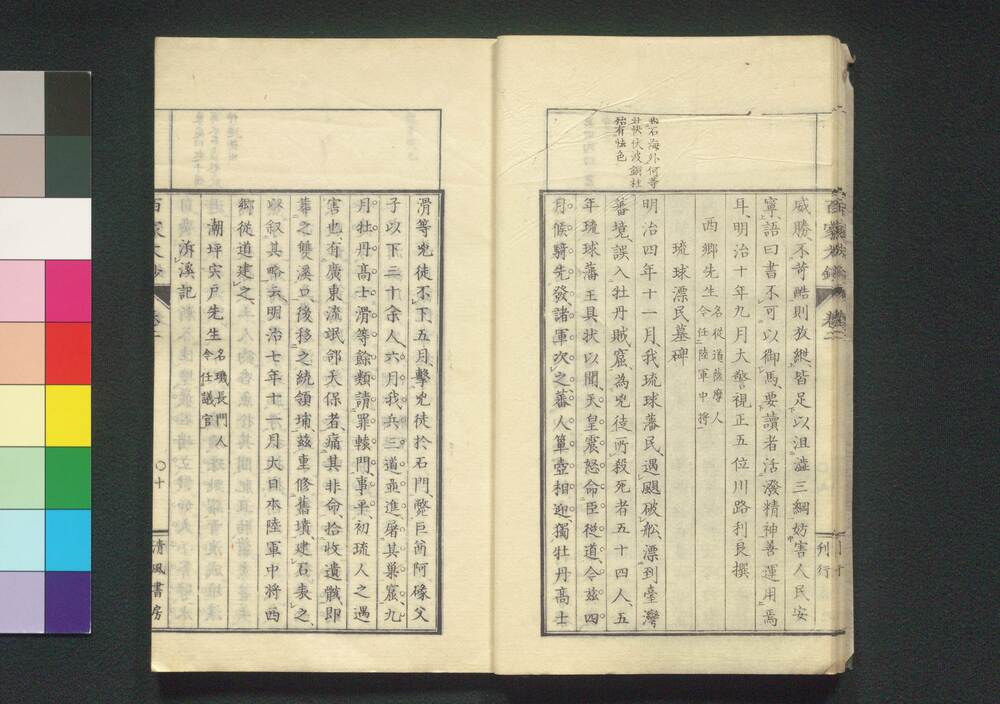 威勝不苛酷則放縱皆足以沮溢三綱妨害人民安
寧、語曰書不可以御馬、要讀者活潑精神善運用焉
耳、明治十年九月大警視正五位川路利良撰
西郷先生 名從道薩摩人
今任陸軍中將
琉球漂民墓碑
明治四年十一月、我琉球藩民、遇颶破舩、漂到臺灣
蕃境、誤入牡丹賊窟、為兇徒所殺死者五十四人、五
年琉球藩王具狀以聞天皇震怒命臣從道、今茲四
月候騎先發、諸軍次之、蕃人簞壺相迎、獨牡丹高士
石海外何等
壯快伏波銅柱
始有怯色
刋行
滑等兇徒不下五月、擊兇徒於石門、斃巨酋阿碌父
子以下三十余人、六月我兵三道並進、屠其巢窟、九
月牡丹高士滑等餘類請罪轅門、事平初琉人之遇
害也有廣東流氓鄧天保者、痛其非命拾收遺骸、即
葬之雙溪口、後移之統領埔、茲重修舊墳建石表之、
畧叙其略云明治七年十一月大日本陸軍中將西
郷從道建之、
潮坪宍戸先生 名璣長門人
今任議官
游溪記
百家文鈔 卷二
〇十
清風書房